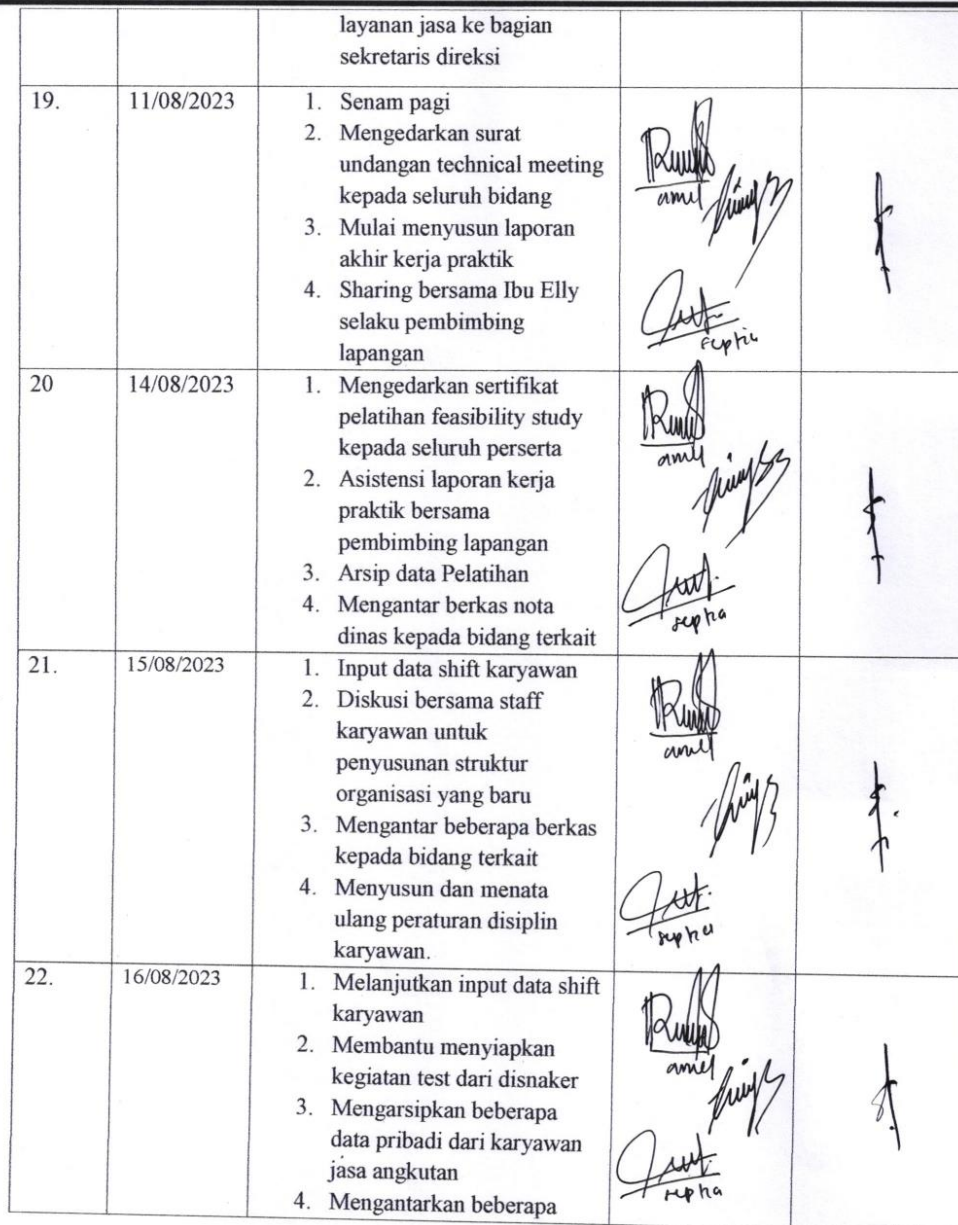 layanan jasa ke bagian
sekretaris direksi
19. 11/08/2023 1. Senam pagi
2. Mengedarkan surat
undangan technical meeting
kepada seluruh bidang
3. Mulai menyusun laporan
akhir kerja praktik
4. Sharing bersama Ibu Elly
selaku pembimbing
lapangan
amel
septia
20 14/08/2023 1. Mengedarkan sertifikat
pelatihan feasibility study
kepada seluruh perserta
2. Asistensi laporan kerja
praktik bersama
pembimbing lapangan
3. Arsip data Pelatihan
4. Mengantar berkas nota
dinas kepada bidang terkait
amel
septia
21. 15/08/2023 1. Input data shift karyawan
2. Diskusi bersama staff
karyawan untuk
penyusunan struktur
organisasi yang baru
3. Mengantar beberapa berkas
kepada bidang terkait
4. Menyusun dan menata
ulang peraturan disiplin
karyawan.
amel
septia
22. 16/08/2023 1. Melanjutkan input data shift
karyawan
2. Membantu menyiapkan
kegiatan test dari disnaker
3. Mengarsipkan beberapa
data pribadi dari karyawan
jasa angkutan
4. Mengantarkan beberapa
amel
septia